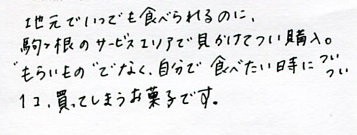 地元でいつでも食べられるのに、
駒ヶ根のサービスエリアで見かけてつい購入。
"もらいもの"でなく、自分で食べたい時につい
つい
1コ、買ってしまうお菓子です。